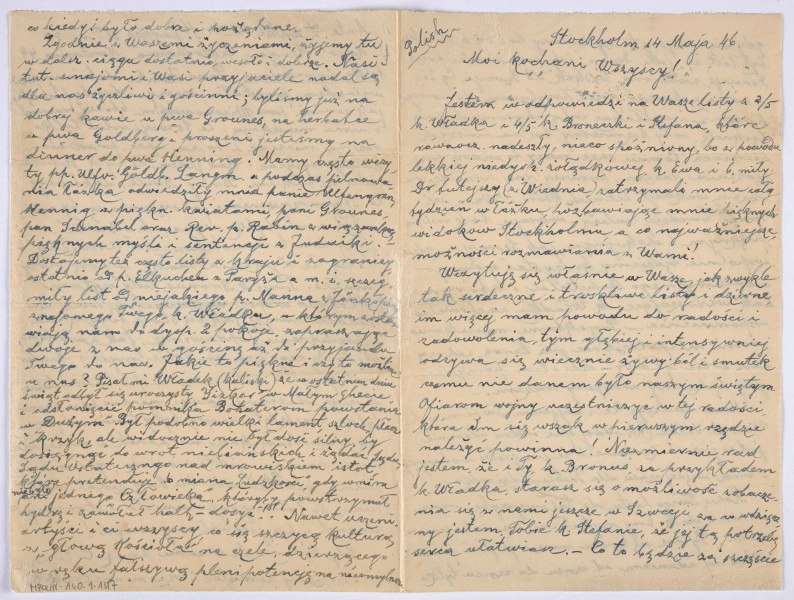 Polish
Stockholm 14 Maja 46.
Moi kochani Wszyscy!
Jestem w odpowiedzi na Wasze listy z 2/5
k. Władka i 4/5 k. Broneczki i Stefana, które
równocz. nadeszły, nieco spóźniony, bo z powodu
lekkiej niedysp. żołądkowej k. Ewa i b. miły
Dr tutejszy (z Wiednia) zatrzymali mnie cały
tydzień w łóżku pozbawiając mnie pięknych
widoków Stockholmu a co najważniejsze,
możności rozmawiania z Wami!
Wczytuję się właśnie w Wasze, jak zwykle
tak serdeczne i troskliwe listy i dziwne,
im więcej mam powodu do radości i
zadowolenia, tym głębiej i intensywniej
odzywa się wiecznie żywy ból i smutek
czemu nie danem było naszym świętym
Ofiarom wojny uczestniczyć w tej radości
która Im się wszak w pierwszym rzędzie
należyć powinna! Niezmiernie rad
jestem, że i Ty, k. Bronus, za przykładem
k. Władka, starasz się o możliwość zobacze-
nia się z nami jeszcze w Szwecji, za co wdzięcz-
ny jestem Tobie k. Stefanie, że jej tę potrzebę
serca ułatwiasz. – Co to będzie za szczęście
co kiedyś było dobre i pożądane.
Zgodnie z Waszemi życzeniami, żyjemy tu
w dalsz. ciągu dostatnio, wesoło i dobrze. Nasi
tut. znajomi i Wasi przyjaciele nadal są
dla nas życzliwi i gościnni; byliśmy już na
dobrej kawie u pwa Grounes, na herbatce
u pwa Goldberg i proszeni jesteśmy na
dinner do pwa Henning. Mamy często wizy-
ty pp. Ulfv. Goldb. Langm. a podczas pilnowa-
nia łóżka odwiedziły mnie panie
Hennig z piękn. kwiatami, pani Grounes,
pan Schnabel oraz Rev. p. Rabin z wiązanką
pięknych myśli i sentencje z Judaiki. –
Dostajemy też często listy z kraju i zagranicy
ostatnio od p. Elkuchen z Paryża a m. i. szczeg.
miły list od niejakiego p. Nanna z
znajomego Twego, k. Władku, w którym zosta-
wiają nam do dysp. 2 pokoje, zapraszając
dwoje z nas w gościnę aż do przyjazdu
Twego do nas. Jakie to piękne i czy to możliwe
u nas? Pisał mi Władek (Kaliski) że w ostatnim dniu
świąt odbył się uroczysty Jizkor w Małym Ghecie
i odsłonięcie pomnika Bohaterom powstania
w Dużym. Był podobno wielki lament, szloch, płacz
i krzyk, ale widocznie nie był dość silny, by
dosięgnąć do wrót niebiańskich i żądać Sądu,
Sądu Ostatecznego nad mrowiskiem istot,
które pretendują o miano Ludzkość, gdy w nim
niebyło ani jednego Człowieka, któryby powstrzymał
hydrę i zawołał halt – dosyć!!! Nawet uczeni,
artyści i ci wszyscy co się szczycą kulturą
z głową Kościoła na czele, dzierżącego
w ręku fałszywą plenipotencję na nieomylność